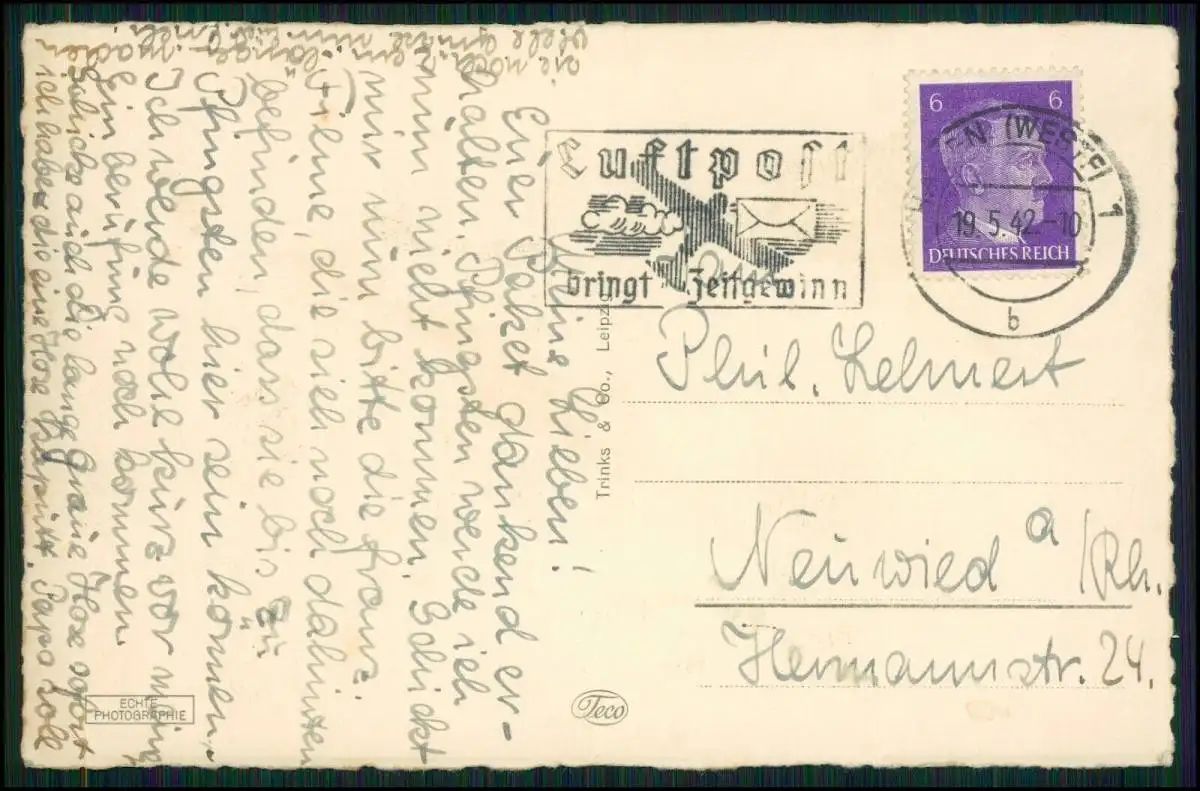 Meine Lieben!
Euer Paket dankend er-
halten. Pfingsten werde ich
nun nicht kommen. Schickt
mir nun bitte die franz.
Filme, die sich noch dahinten
befinden, dass sie bis zu
Pfingsten hier sein können.
Ich werde wohl kurz vor meiner
Einberufung noch kommen
Schickt auch die lange graue Hose sofort
ich habe die eine Hose kaputt. Papa soll
die noch
viele Grüsse
Luftpost
bringt Zeitgewinn
6 6
DEUTSCHES REICH
N (WESTF) 1
19.5.42.-10
b
Phil. Lehnert
Neuwied a/Rh.
Hermannstr. 24.
Trinks & Co., Leipzig
ECHTE
PHOTOGRAPHIE
Teco